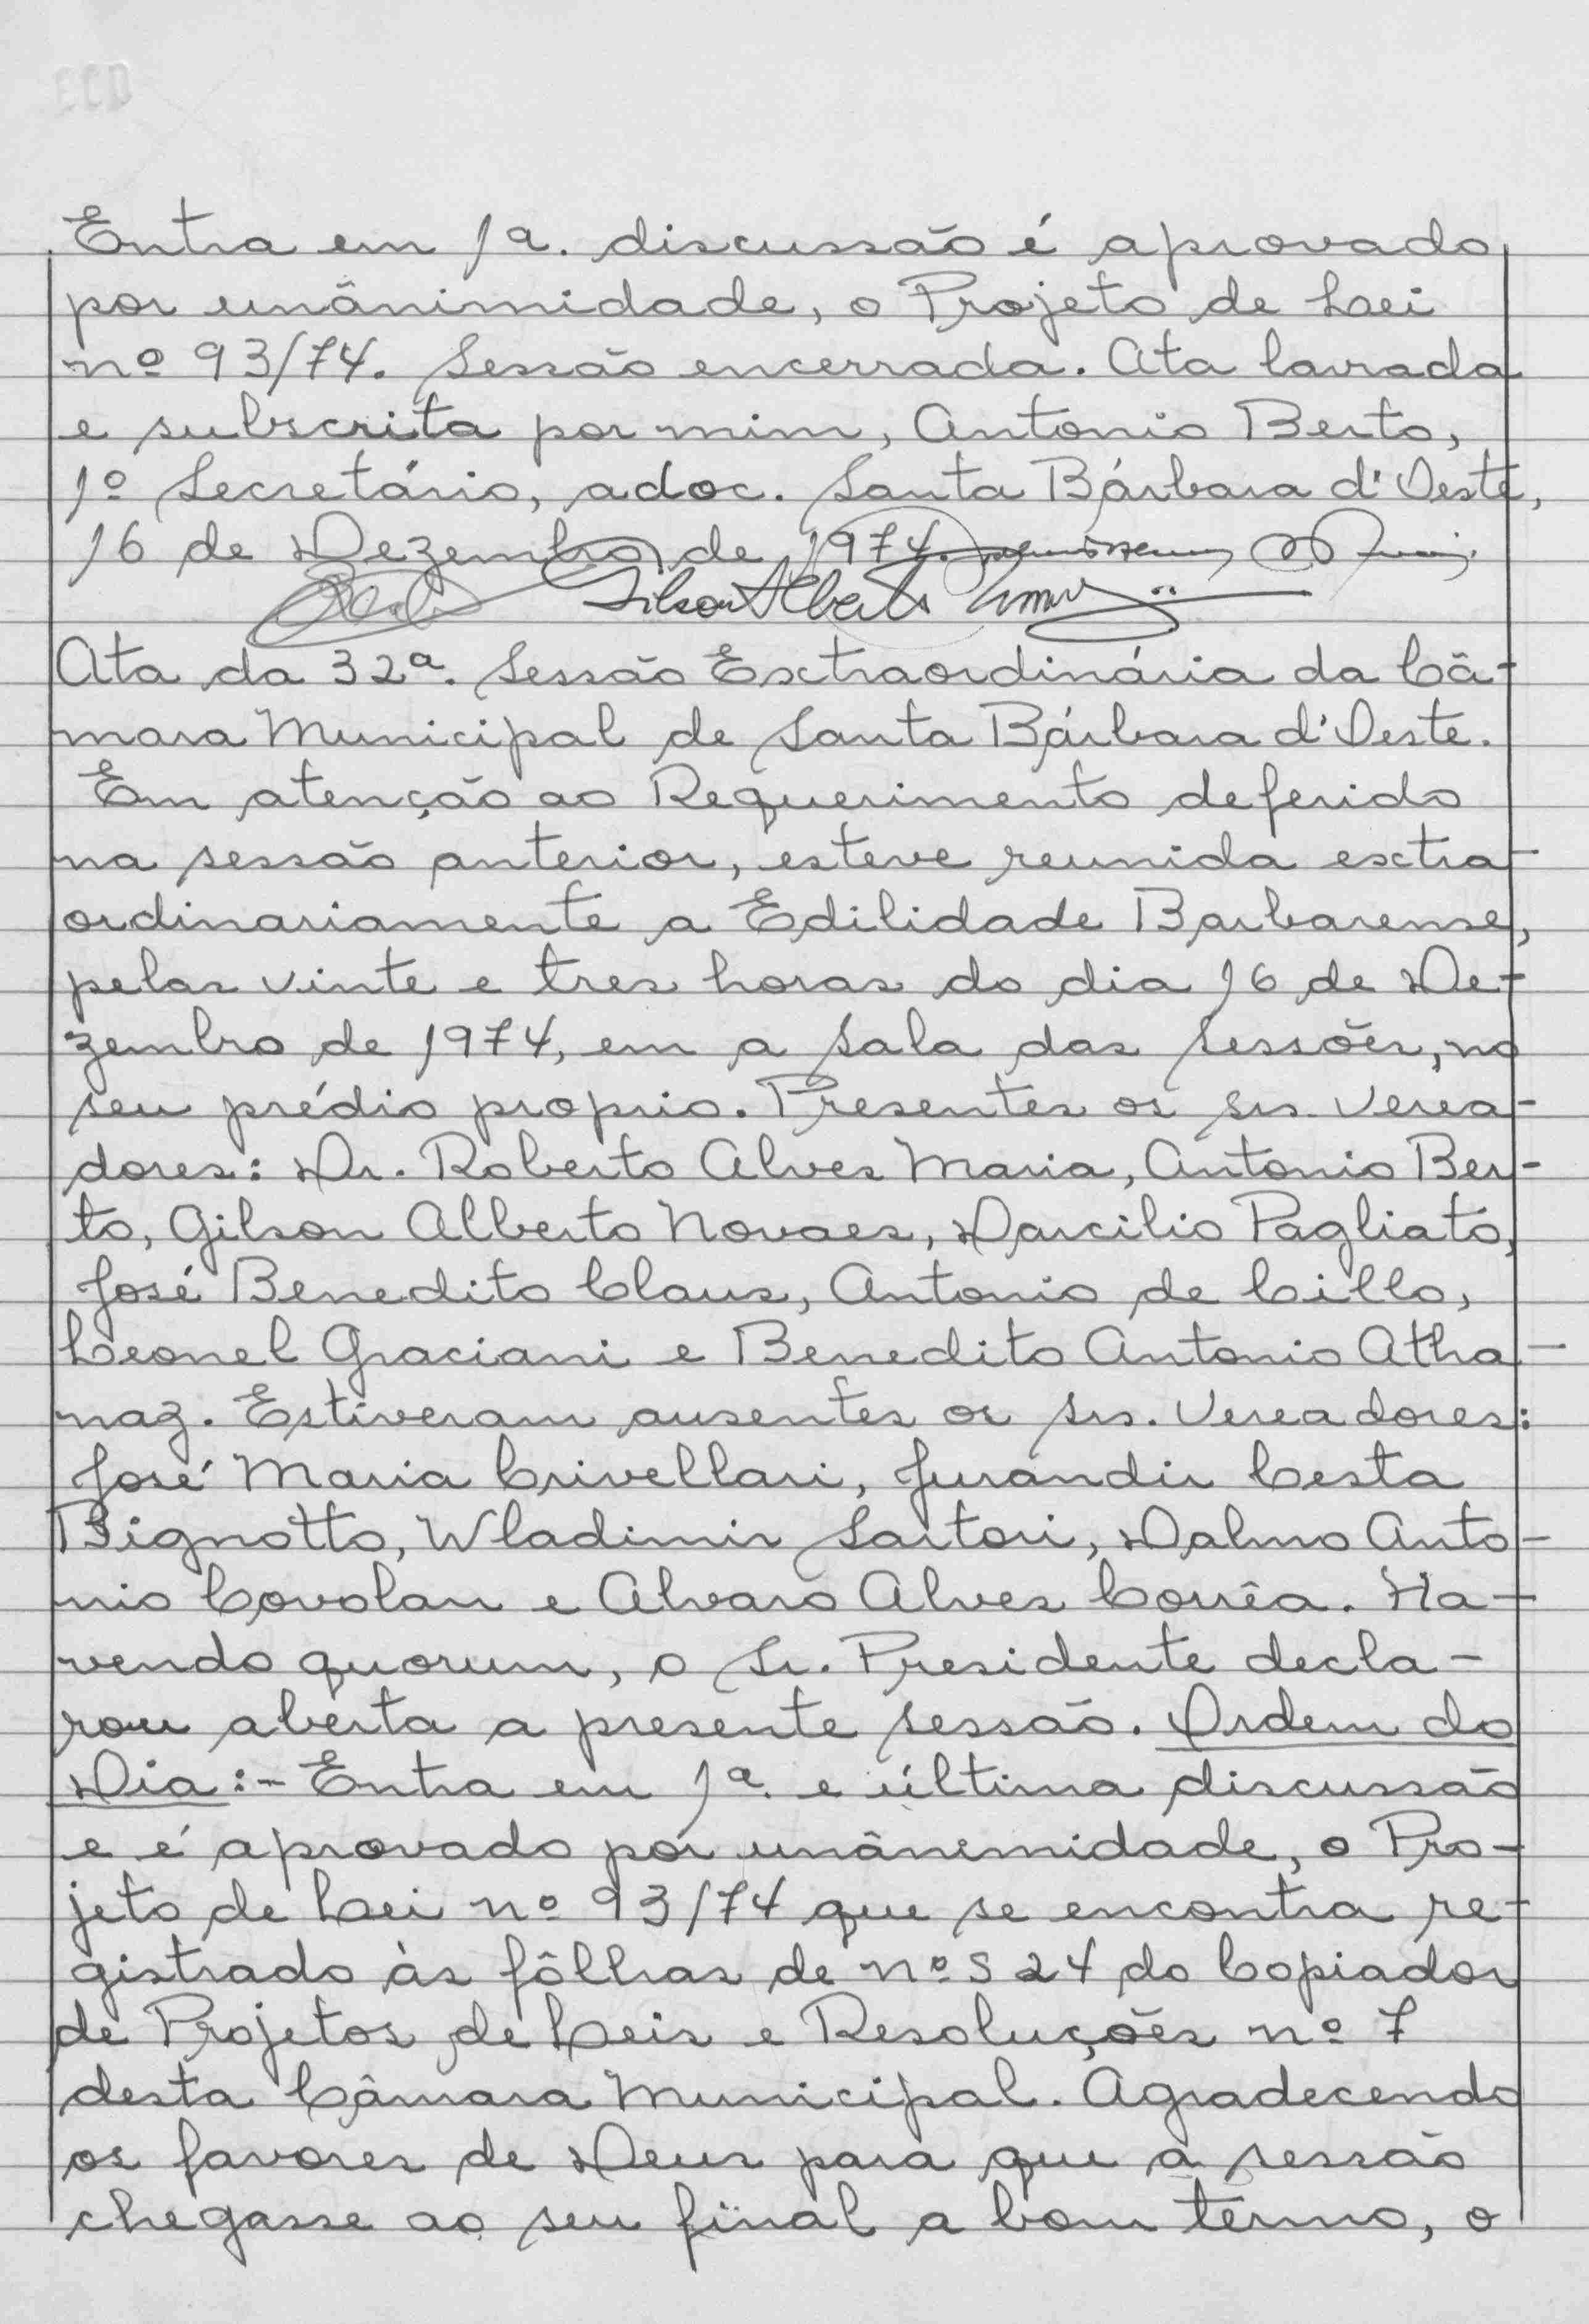 Entra em 1a. discussão é aprovado
por unânimidade, o Projeto de Lei
nº 93/74. Sessão encerrada. Ata lavrada
e subscrita por mim, Antonio Berto,
1º Secretário, adoc. Santa Bárbara d'Oeste,
16 de Dezembro de 1974.
Gilson Alberto
Ata da 32ª. Sessão Extraordinária da Câ-
mara Municipal de Santa Bárbara d'Oeste.
Em atenção ao Requerimento deferido
na sessão anterior, esteve reunida extra-
ordinariamente a Edilidade Barbarense,
pelas vinte e tres horas do dia 16 de De-
zembro de 1974, em a Sala das Sessões, no
seu prédio proprio. Presentes os srs. Verea-
dores: Dr. Roberto Alves Maria, Antonio Ber-
to, Gilson Alberto Novaes, Darcilio Pagliato,
José Benedito Claus, Antonio de Cillo,
Leonel Graciani e Benedito Antonio Atha-
naz. Estiveram ausentes os srs. Vereadores:
José Maria Crivellari, Jurandir Cesta
Bignotto, Wladimir Sartori, Dalmo Anto-
nio Covolan e Alvaro Alves Corrêa. Ha-
vendo quorum, o Sr. Presidente decla-
rou aberta a presente sessão. Ordem do
Dia:- Entra em 1ª. e última discussão
e é aprovado por unânimidade, o Pro-
jeto de Lei nº 93/74 que se encontra re-
gistrado às fôlhas de nºs 24 do Copiador
de Projetos de Leis e Resoluções nº 7
desta Câmara Municipal. Agradecendo
os favores de Deus para que a sessão
chegasse ao seu final a bom têrmo, o